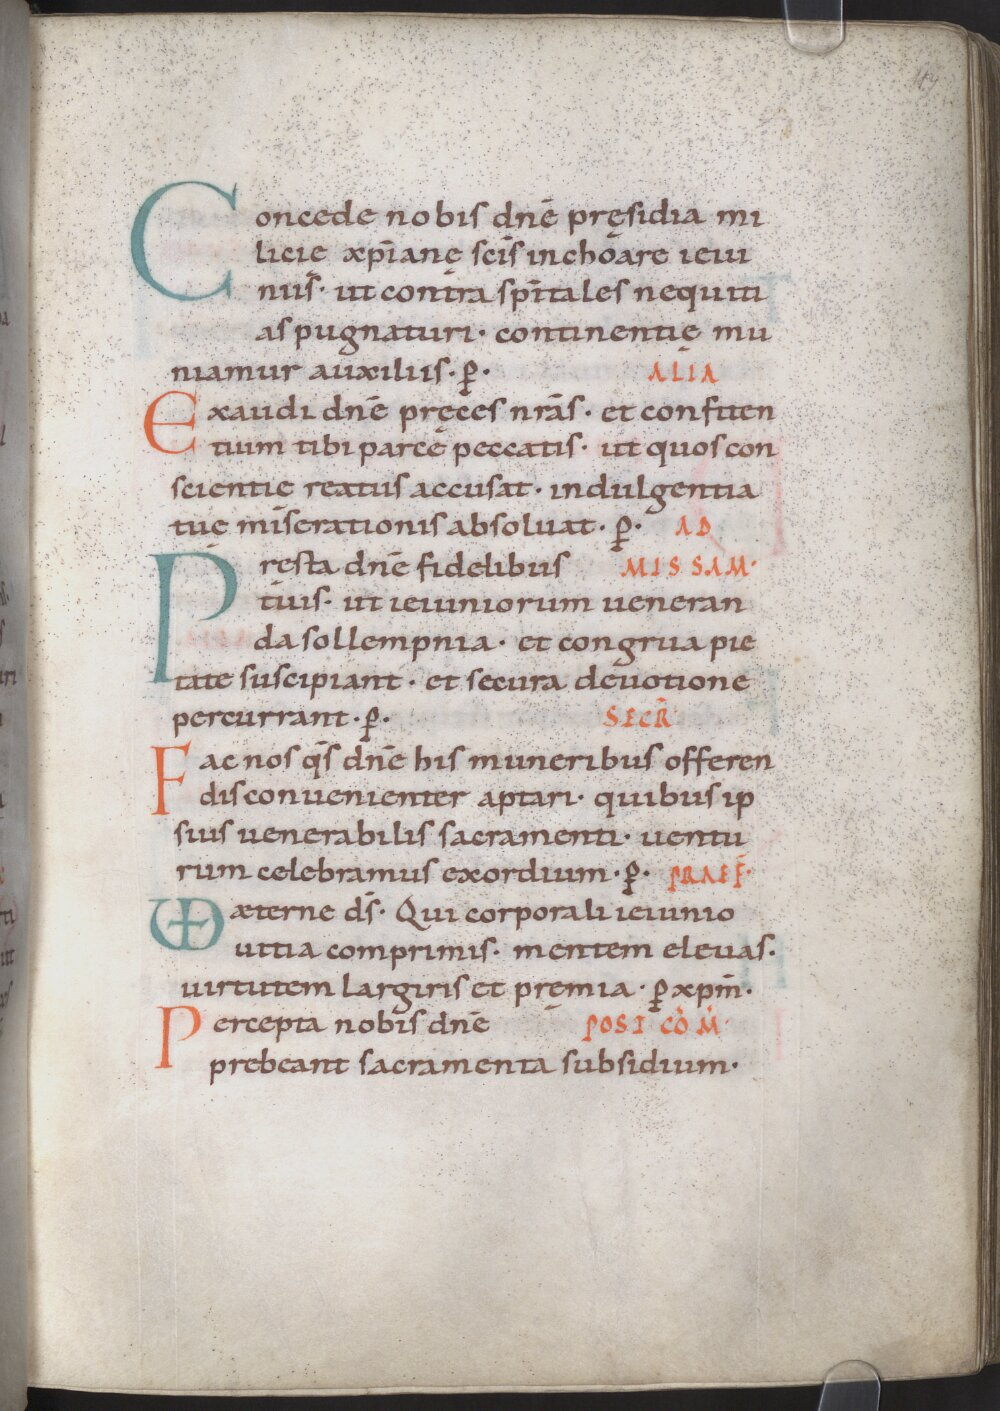 Concede nobis dnē pręsidia mi
licie xp̄ianę sc̄is inchoare ieiu
niis· ut contra sp̄itales nequiti
as pugnaturi· continentię mu
niamur auxiliis· p̄· ALIA
Exaudi dnē pręces nr̄as· et confiten
tium tibi parce peccatis· ut quos con
scientie reatus accusat· indulgentia
tuę miserationis absoluat· p̄· AD
Presta dnē fidelibus MISSAM·
tuis· ut ieiuniorum ueneran
da sollempnia· et congrua pie
tate suscipiant· et secura deuotione
percurrant· p̄· SECR̄
Fac nos q̄s dnē his muneribus offeren
dis conuenienter aptari· quibus ip
sius uenerabilis sacramenti· uentu
rum celebramus exordium· p̄· PRAEF̄·
VD æterne d̄s· Qui corporali ieiunio
uitia comprimis· mentem eleuas·
uirtutem largiris et pręmia· p̄ xp̄m·
Percepta nobis dnē POST CŌM̄
prebeant sacramenta subsidium·